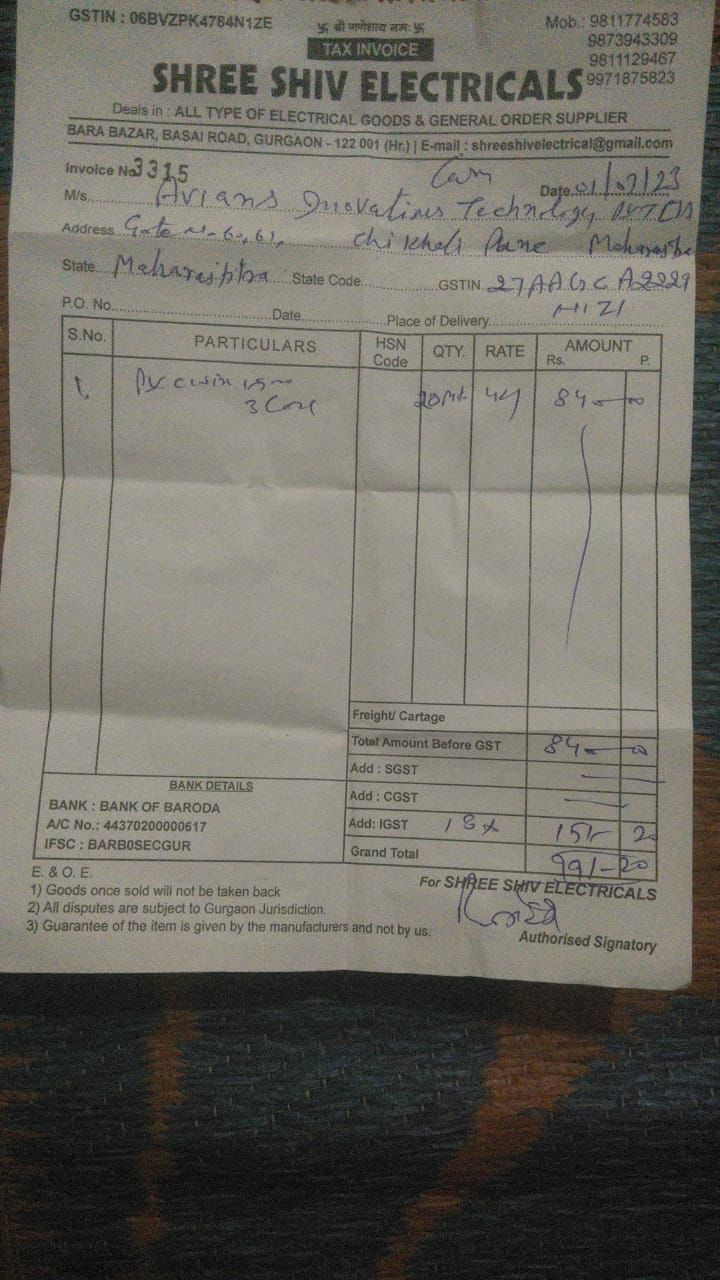 GSTIN : 06BVZPK4784N1ZE
卐 श्री गणेशाय नमः 卐
Mob.: 9811774583
9873943309
9811129467
9971875823
TAX INVOICE
SHREE SHIV ELECTRICALS
Deals in : ALL TYPE OF ELECTRICAL GOODS & GENERAL ORDER SUPPLIER
BARA BAZAR, BASAI ROAD, GURGAON - 122 001 (Hr.) | E-mail : shreeshivelectrical@gmail.com
Invoice No. 3315
Date. 01/07/23
M/s. Avians Innovations Technology PVT LTD
Address Gate no. 60,61, Chikhali Pune Maharashtra
State. Maharashtra State Code. GSTIN 27AAGCA2229
H1Z1
P.O. No. Date. Place of Delivery.
S.No. PARTICULARS HSN Code QTY. RATE AMOUNT Rs. P.
1 PVC 3 Core 20Mt. 42/ 840-00
Freight/ Cartage
Total Amount Before GST 840-00
Add : SGST
Add : CGST
Add: IGST 18% 151- 20
Grand Total 991-20
BANK DETAILS
BANK : BANK OF BARODA
A/C No.: 44370200000617
IFSC : BARB0SECGUR
E. & O. E.
1) Goods once sold will not be taken back
2) All disputes are subject to Gurgaon Jurisdiction.
3) Guarantee of the item is given by the manufacturers and not by us.
For SHREE SHIV ELECTRICALS
Authorised Signatory